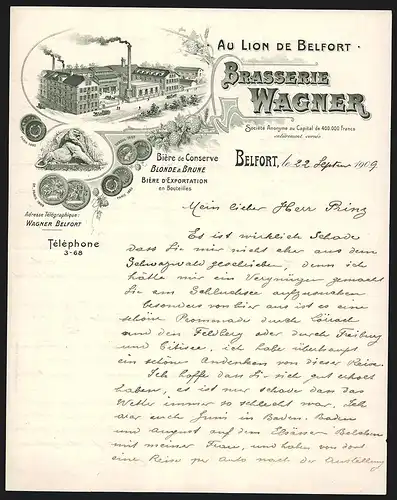 Au Lion de Belfort
Brasserie
Wagner
Société Anonyme au Capital de 400.000 Francs
entièrement versés
Bière de Conserve
Blonde & Brune
Bière d'Exportation
en Bouteilles
Adresse Télégraphique:
Wagner Belfort
Téléphone
3-68
Belfort, le 22 Septbr 1909
Mein lieber Herr Prinz
Es ist wirklich Schade
dass Sie mir nicht eher aus dem
Schwarzwald geschrieben, denn ich
hätte mir ein Vergnügen gemacht
Sie am Schluchsee aufzusuchen
besonders von hier aus ist es eine
schöne Promenade durch Lörrach
und den Feldberg oder durch Freiburg
und Titisee. ich habe überhaupt
ein schönes Andenken von dieser Reise.
Ich hoffe dass Sie sich gut erholt
haben, es ist nur schade dass das
Wetter immer so schlecht war. Ich
war auch Juni in Baden-Baden
und August auf dem Elsässer Belchen
mit meiner Frau, und haben von dort
eine Reise per Auto nach der Ausstellung